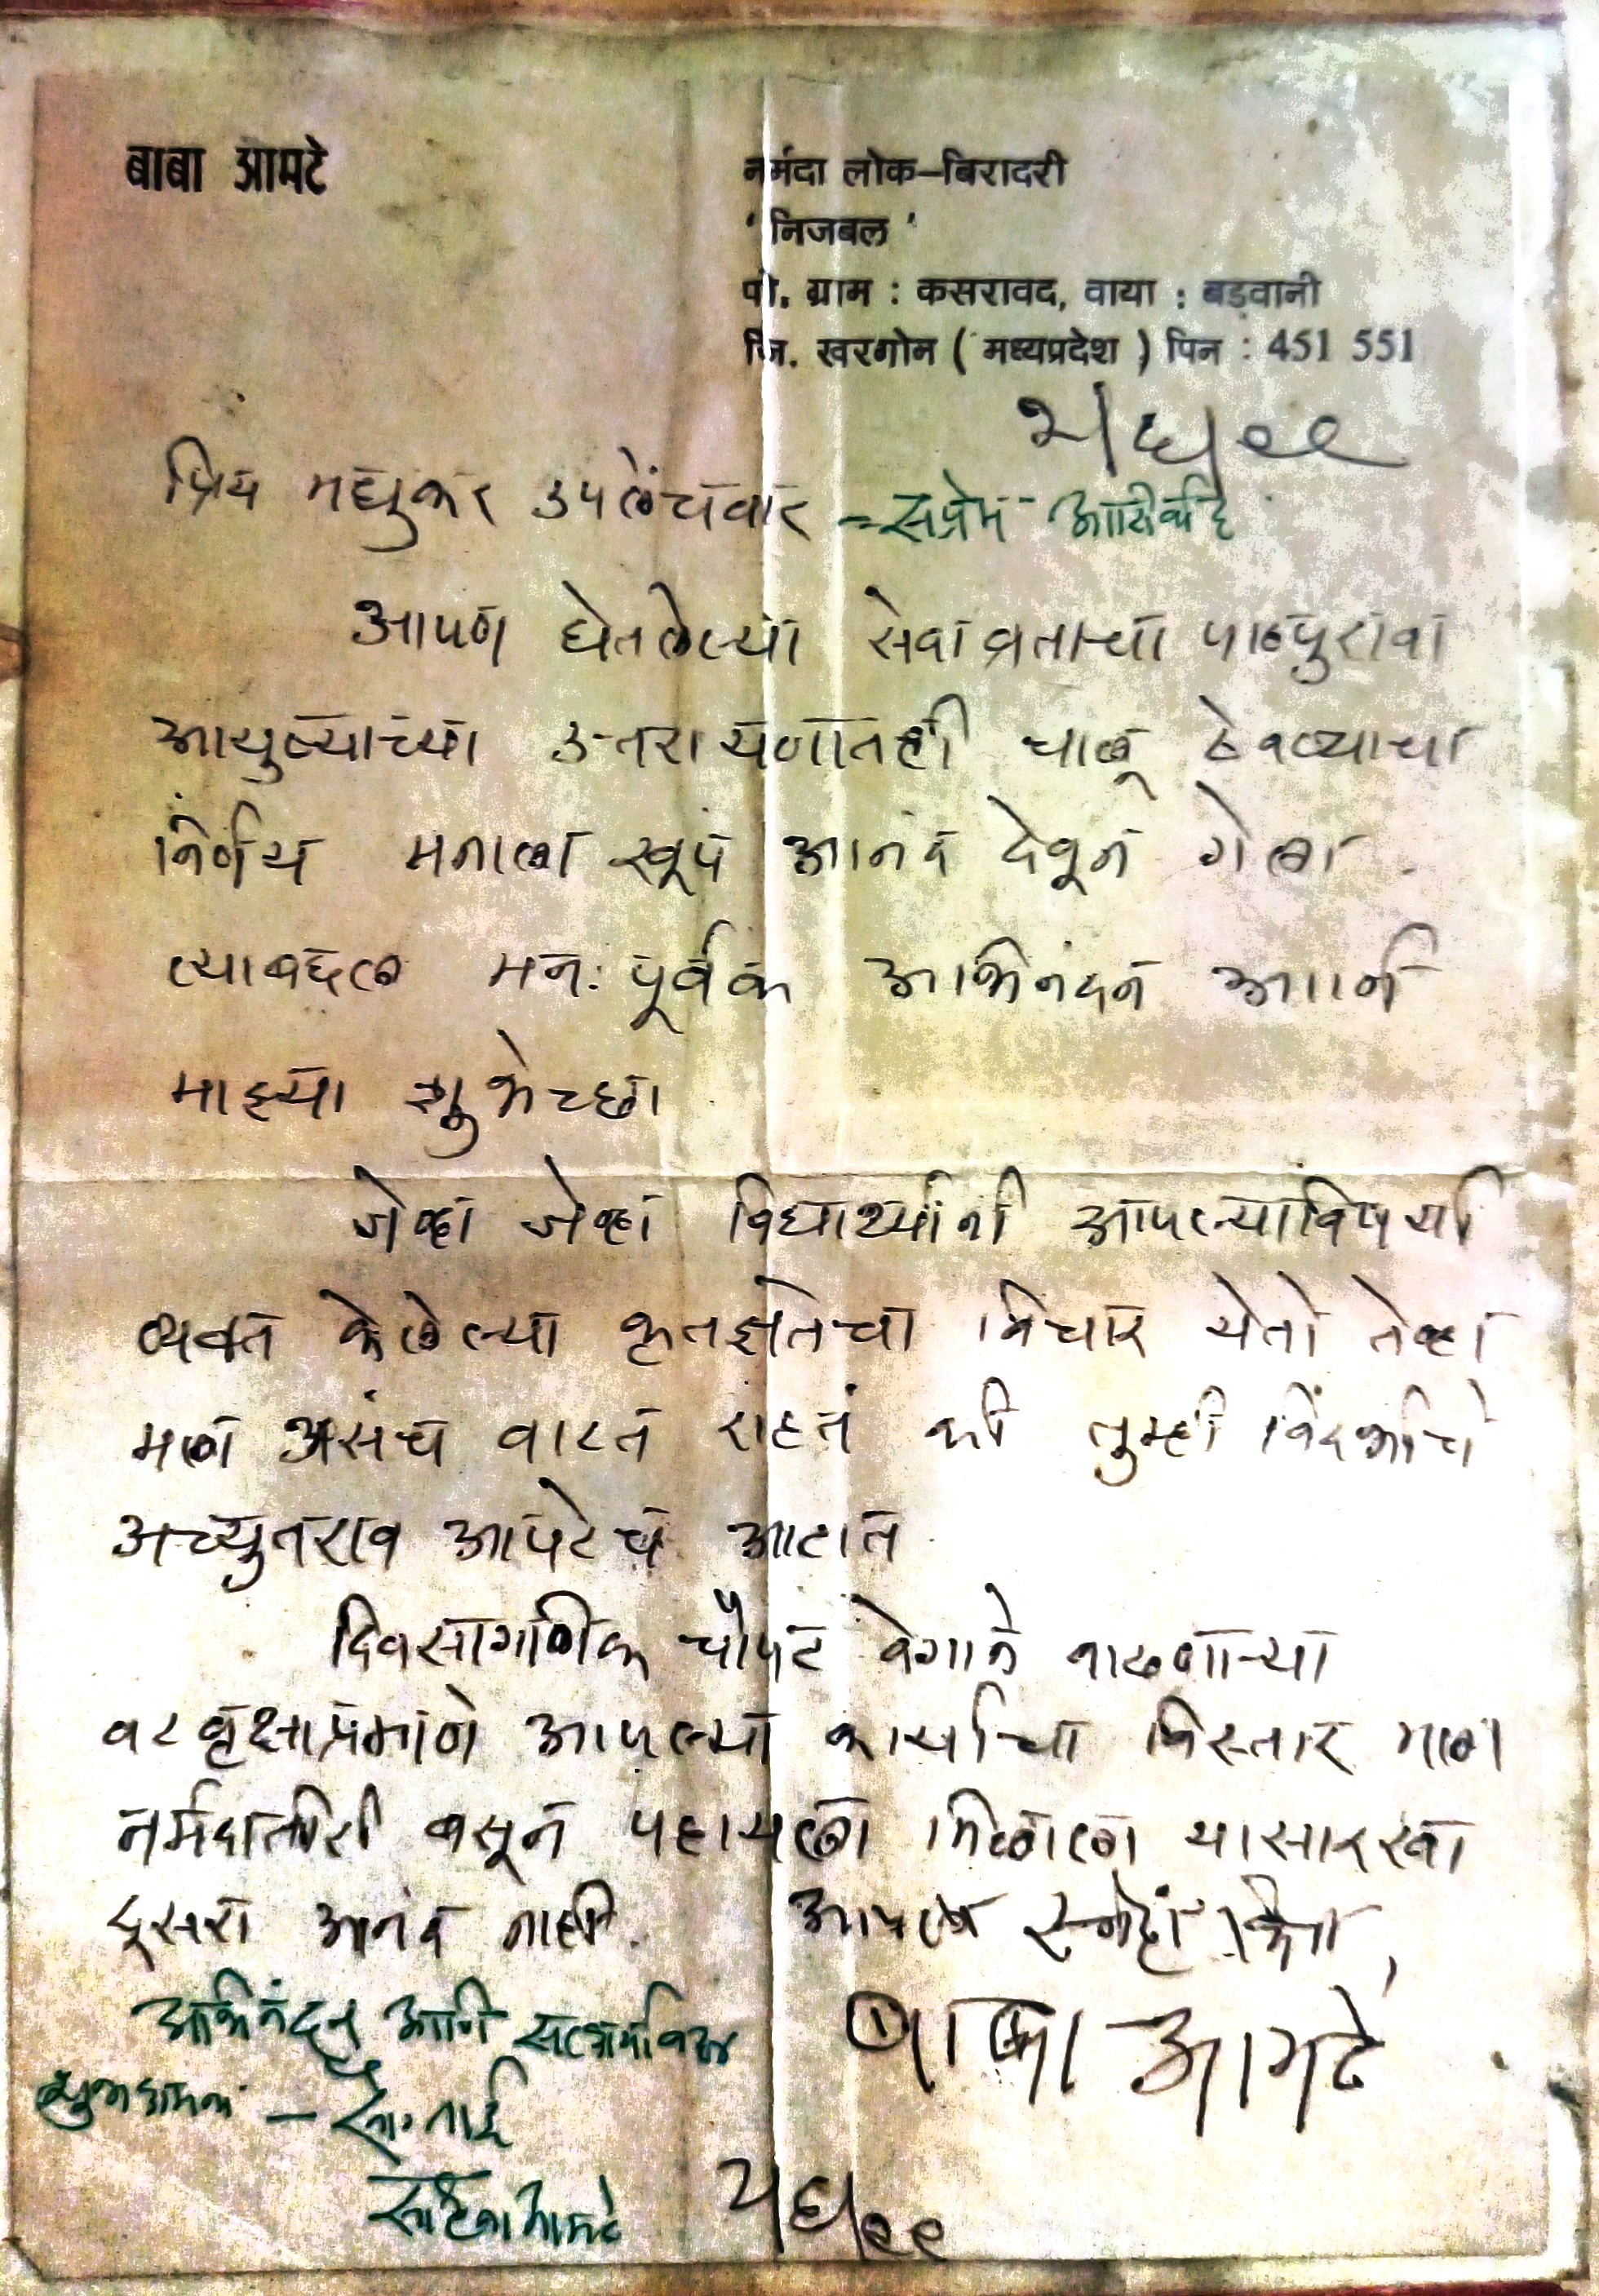 बाबा आमटे
नर्मदा लोक-बिरादरी
'निजबल'
पो. ग्राम : कसरावद, वाया : बड़वानी
जि. खरगोन ( मध्यप्रदेश ) पिन : 451 551
प्रिय मधुकर उपलेंचवार - सप्रेम आशीर्वाद
आपण घेतलेल्या सेवाव्रताचा पाठपुरावा
आयुष्याच्या उत्तरायणातही चालू ठेवण्याचा
निर्णय मनाला खूप आनंद देवून गेला.
त्याबद्दल मनःपूर्वक अभिनंदन आणि
माझ्या शुभेच्छा.
जेव्हा जेव्हा विद्यार्थ्यांनी आपल्याविषयी
व्यक्त केलेल्या कृतज्ञतेचा विचार येतो तेव्हा
मला असंच वाटत राहतं की तुम्ही विदर्भाचे
अच्युतराव आपटेच आहात.
दिवसागणिक चौपट वेगाने वाढणाऱ्या
वटवृक्षाप्रमाणे आपल्या कार्याचा विस्तार मला
नर्मदातीरी बसून पहायला मिळाला यासारखा
दूसरा आनंद नाही.
आपला स्नेहांकित,
बाबा आमटे
अभिनंदन आणि
शुभकामना - सौ. ताई
साधना आमटे